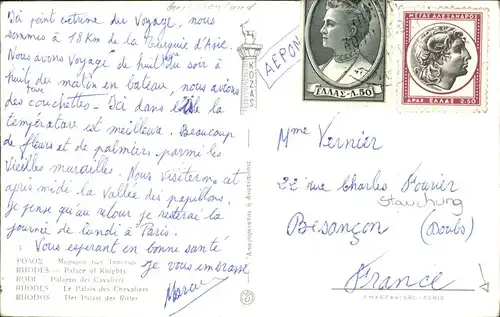 Ici point extrême du Voyage, nous
sommes à 18 Km de la Turquie d'Asie.
Nous avons Voyagé de huit du soir à
huit du matin en bateau, nous avions
des couchettes - Ici dans l'île la
température est meilleure. Beaucoup
de fleurs et de palmiers parmi les
Vieilles murailles. Nous Visiterons cet
après midi la Vallée des papillons.
Je pense qu'au retour je resterai la
journée de lundi à Paris.
Vous espérant en bonne santé
je vous embrasse
ΡΟΔΟΣ
RHODES — Palace of Knights
RODI Palazzo dei Cavalieri
RHODES Le Palais des Chevaliers
RHODOS Der Palast der Ritter
ΡΟΔΟΣ
ΑΕΡΟΠ
ΕΛΛΑΣ-Δ.50
ΜΕΓΑΣ ΑΛΕΞΑΝΔΡΟΣ
ΔΡΑΧ ΕΛΛΑΣ 2.50
Ἀπαγορεύεται ἡ ἀνατύπωσις
Mme Vernier
22 rue Charles Fourier
Besançon
(Doubs)
France